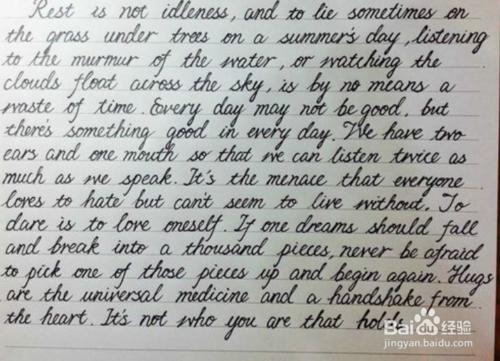 Rest is not idleness, and to lie sometimes on
the grass under trees on a summer's day, listening
to the murmur of the water, or watching the
clouds float across the sky, is by no means a
waste of time. Every day may not be good, but
there's something good in every day. We have two
ears and one mouth so that we can listen twice as
much as we speak. It's the menace that everyone
loves to hate but can't seem to live without. To
dare is to love oneself. If one dreams should fall
and break into a thousand pieces, never be afraid
to pick one of those pieces up and begin again. Hugs
are the universal medicine and a handshake from
the heart. It's not who you are that holds
Baidu 经验
jingyan.baidu.com